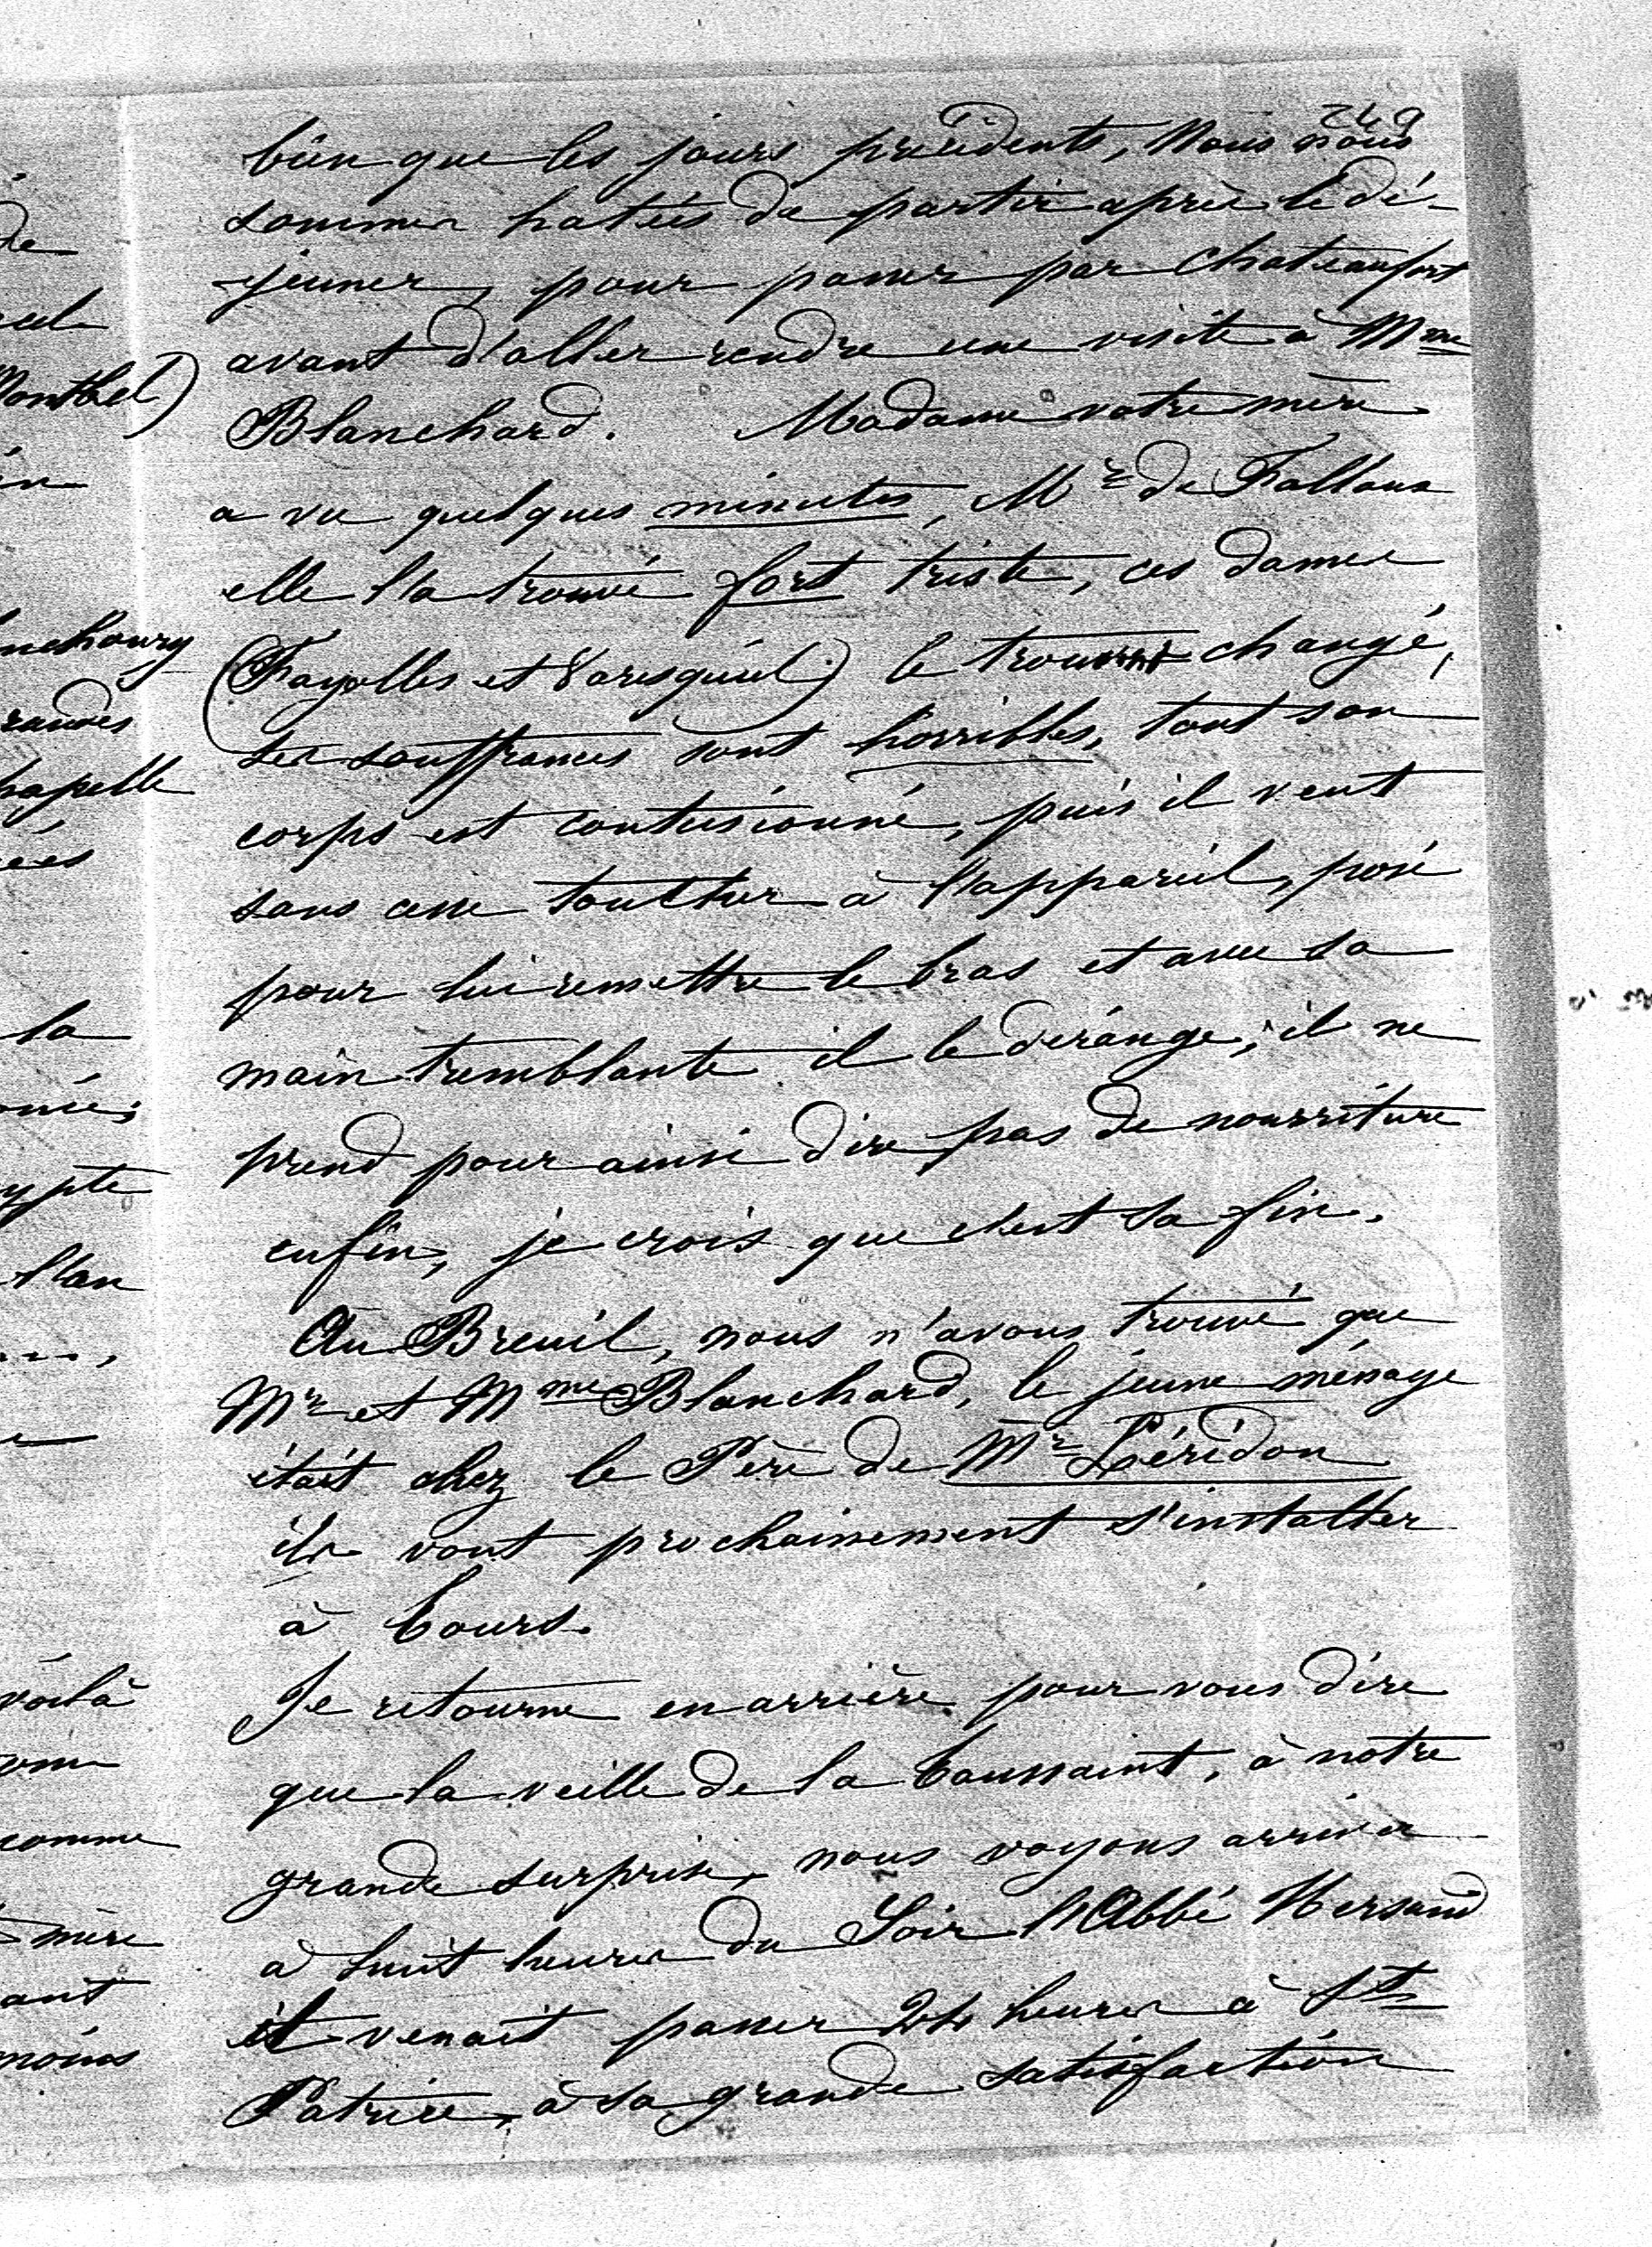 249
bien que les jours précédents, Nous nous
sommes hatées de partir après le dé-
-jeuner, pour passer par Chateaufort
avant d'aller rendre une visite à Mme
Blanchard. Madame votre mère
a vu quelques minutes, Mr de Falloux
elle l'a trouvé fort triste, ces dames
(Fayolles et Varesquiel) le trouvent changé,
ses souffrances sont horribles, tout son
corps est contusionné, puis il veut
sans cesse toucher à l'appareil, posé
pour lui remettre le bras et avec sa
main tremblante il le dérange; il ne
prend pour ainsi dire pas de nourriture
enfin, je crois que c'est sa fin.
Au Breuil, nous n'avons trouvé que
Mr et Mme Blanchard, le jeune ménage
était chez le Père de Mr Léridon
ils vont prochainement s'installer
à Tours.
Je retourne en arrière pour vous dire
que la veille de la Toussaint, à notre
grande surprise, nous voyons arriver
à huit heures du Soir l'Abbé Hersand
il venait passer 24 heures à St
Patrice, à sa grande satisfaction
de
Montbel)
randes
chapelle
la
l'an
voilà
comme
mère
moins